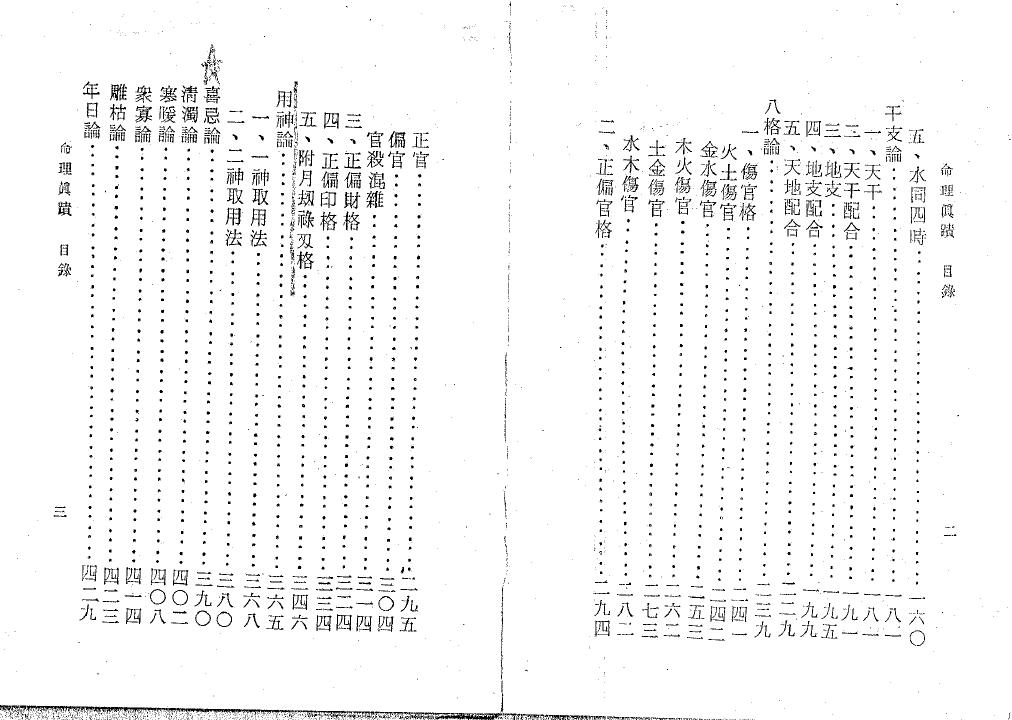 命理眞蹟 目錄
二
五、水同四時 一六〇
干支論 一八一
一、天干 一八一
二、天干配合 一九一
三、地支 一九五
四、地支配合 一九九
五、天地配合 二二九
八格論 二三九
一、傷官格 二四一
火土傷官 二四二
金水傷官 二五三
木火傷官 二六二
土金傷官 二七三
水木傷官 二八二
二、正偏官格 二九四
正官 二九五
偏官 三〇四
官殺混雜 三一四
三、正偏財格 三二四
四、正偏印格 三三四
五、附月刼祿刃格 三四六
用神論 三六五
一、一神取用法 三六八
二、二神取用法 三八〇
喜忌論 三九〇
清濁論 四〇二
寒暖論 四〇八
衆寡論 四一四
雕枯論 四二三
年日論 四二九
命理眞蹟 目錄
三